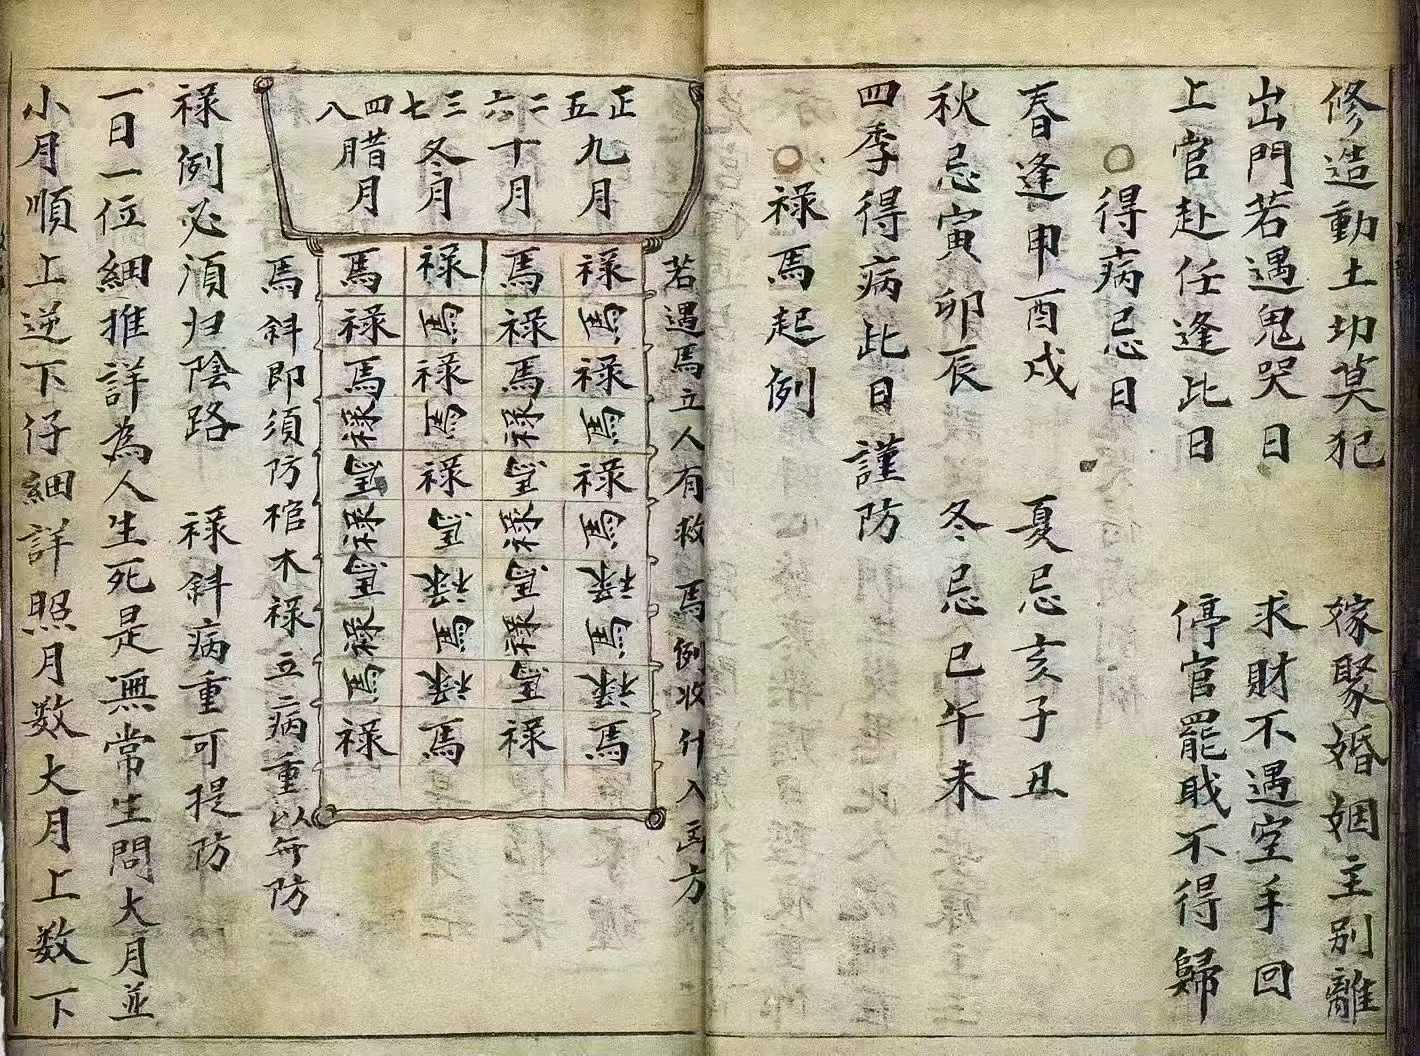 修造動土切莫犯 嫁娶婚姻主別離
出門若遇鬼哭日 求財不遇空手回
上官赴任逢此日 停官罷戝不得歸
○得病忌日
春逢申酉戌 夏忌亥子丑
秋忌寅卯辰 冬忌巳午未
四季得病此日謹防
○祿馬起例
若遇馬立人有救 馬倒收什入 方
正五九月
二六十月
三七冬月
四八腊月
祿 馬 祿 馬
馬 祿 馬 祿
祿 馬 祿 馬
馬 祿 馬 祿
祿 馬 祿 馬
馬 祿 馬 祿
祿 馬 祿 馬
馬 祿 馬 祿
祿 馬 祿 馬
馬 祿 馬 祿
馬斜即須防棺木 祿立病重以無防
祿倒必須归陰路 祿斜病重可提防
一日一位細推詳 為人生死是無常 生問大月並
小月順上逆下仔細詳照月数大月上数下